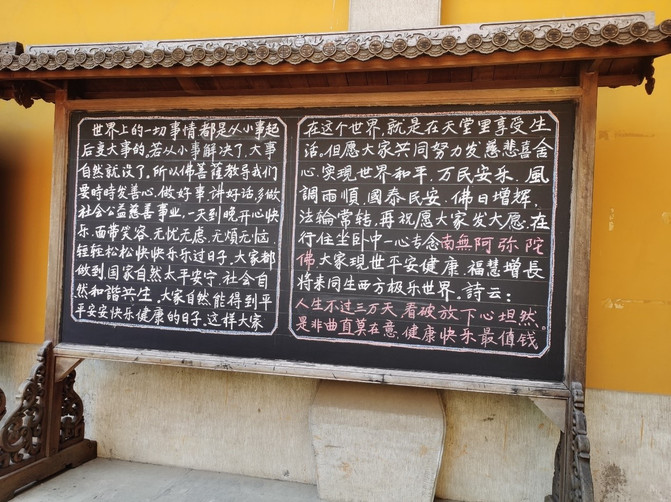 世界上的一切事情都是从小事起
后变大事的,若从小事解决了,大事
自然就没了,所以佛菩薩教导我们
要時時发善心,做好事,讲好话,多做
社会公益慈善事业,一天到晚开心快
乐,面带笑容,无忧无虑,无煩无恼,
轻轻松松快快乐乐过日子,大家都
做到,国家自然太平安宁,社会自
然和諧共生,大家自然能得到平
平安安快乐健康的日子。这样大家
在这个世界,就是在天堂里享受生
活,但愿大家共同努力发慈悲喜舍
心,实現世界和平,万民安乐,風
調雨順,國泰民安,佛日增辉,
法輪常转,再祝愿大家发大愿,在
行住坐卧中一心专念南無阿弥陀
佛,大家現世平安健康,福慧增長
将来同生西方极乐世界。詩云:
人生不过三万天,看破放下心坦然。
是非曲直莫在意,健康快乐最值钱。